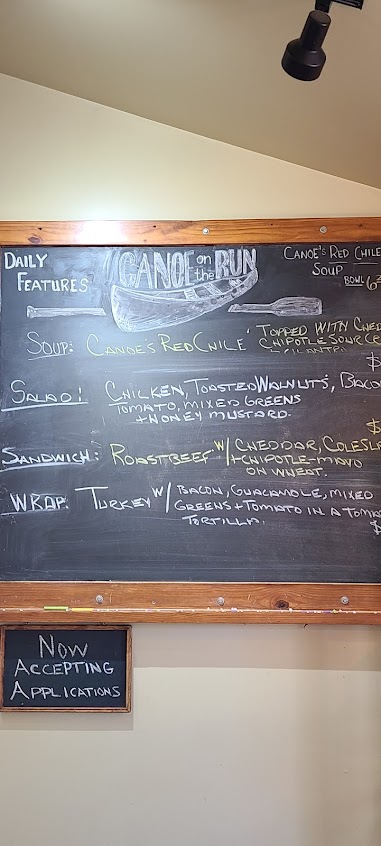 DAILY
FEATURES
CANOE on the RUN
CANOE'S RED CHILE
SOUP
BOWL
SOUP: CANOE'S RED CHILE' TOPPED WITH CHED
CHIPOTLE SOUR CR
+ CILANTRO
$
SALAD: CHICKEN, TOASTED WALNUTS, BACO
TOMATO, MIXED GREENS
+ HONEY MUSTARD.
$
SANDWICH: ROAST BEEF W/ CHEDDAR, COLESLA
+ CHIPOTLE-MAYO
ON WHEAT.
WRAP: TURKEY W/ BACON, GUACAMOLE, MIXED
GREENS + TOMATO IN A TOMA
TORTILLA.
$
NOW
ACCEPTING
APPLICATIONS